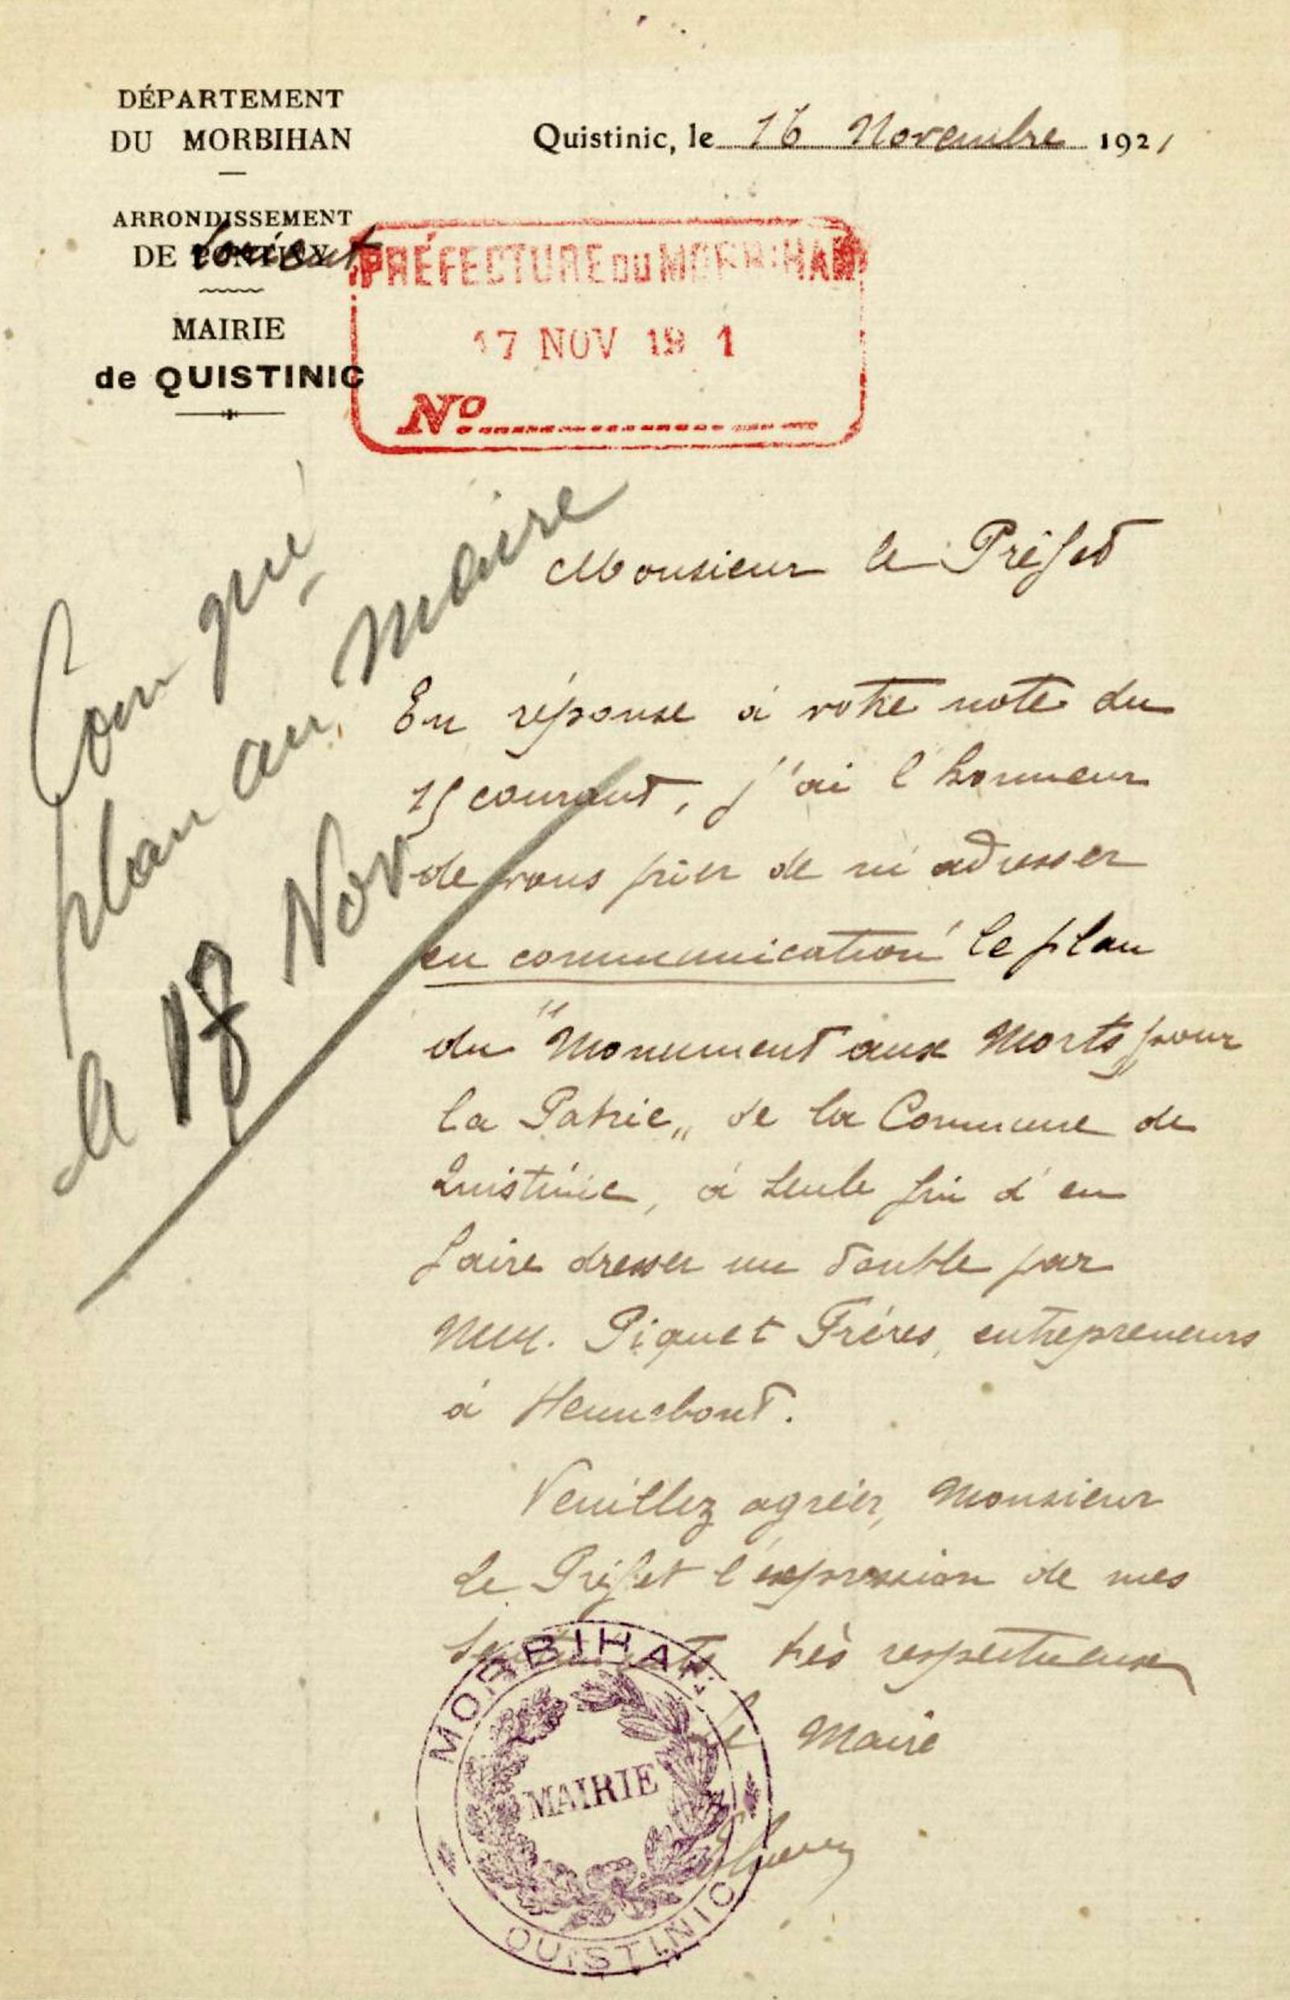 DÉPARTEMENT
DU MORBIHAN
ARRONDISSEMENT
DE PONTIVY Lorient
MAIRIE
de QUISTINIC
Quistinic, le 16 Novembre 1921
PRÉFECTURE DU MORBIHAN
17 NOV 19 1
No
Comqué
plan au maire
le 17 Nov
Monsieur le Préfet
En réponse à votre note du
15 courant, j'ai l'honneur
de vous prier de m'adresser
en communication le plan
du "Monument aux Morts pour
la Patrie" de la Commune de
Quistinic, à seule fin d'en
faire dresser un double par
MM. Piquet Frères, entrepreneurs
à Hennebont.
Veuillez agréer, Monsieur
Le Préfet l'expression de mes
sentiments très respectueux
Le Maire
MORBIHAN
MAIRIE
QUISTINIC